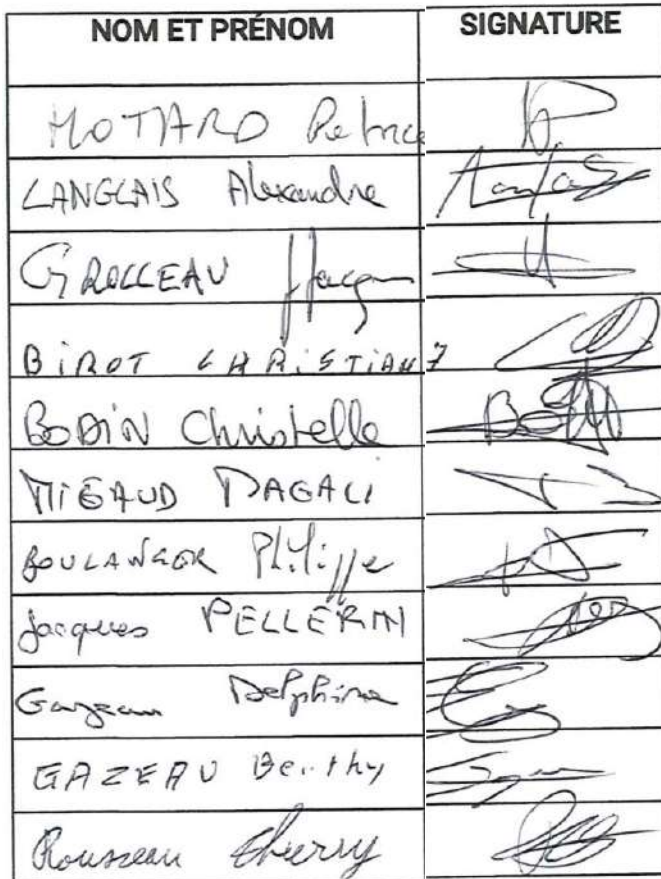 NOM ET PRÉNOM SIGNATURE
MOTARD Patrice
LANGLAIS Alexandre
GROLLEAU Jacques
BIROT CHRISTIAN
BODIN Christelle
MIGAUD MAGALI
BOULANGER Philippe
Jacques PELLERIN
Delphine
GAZEAU
Rousseau Thierry